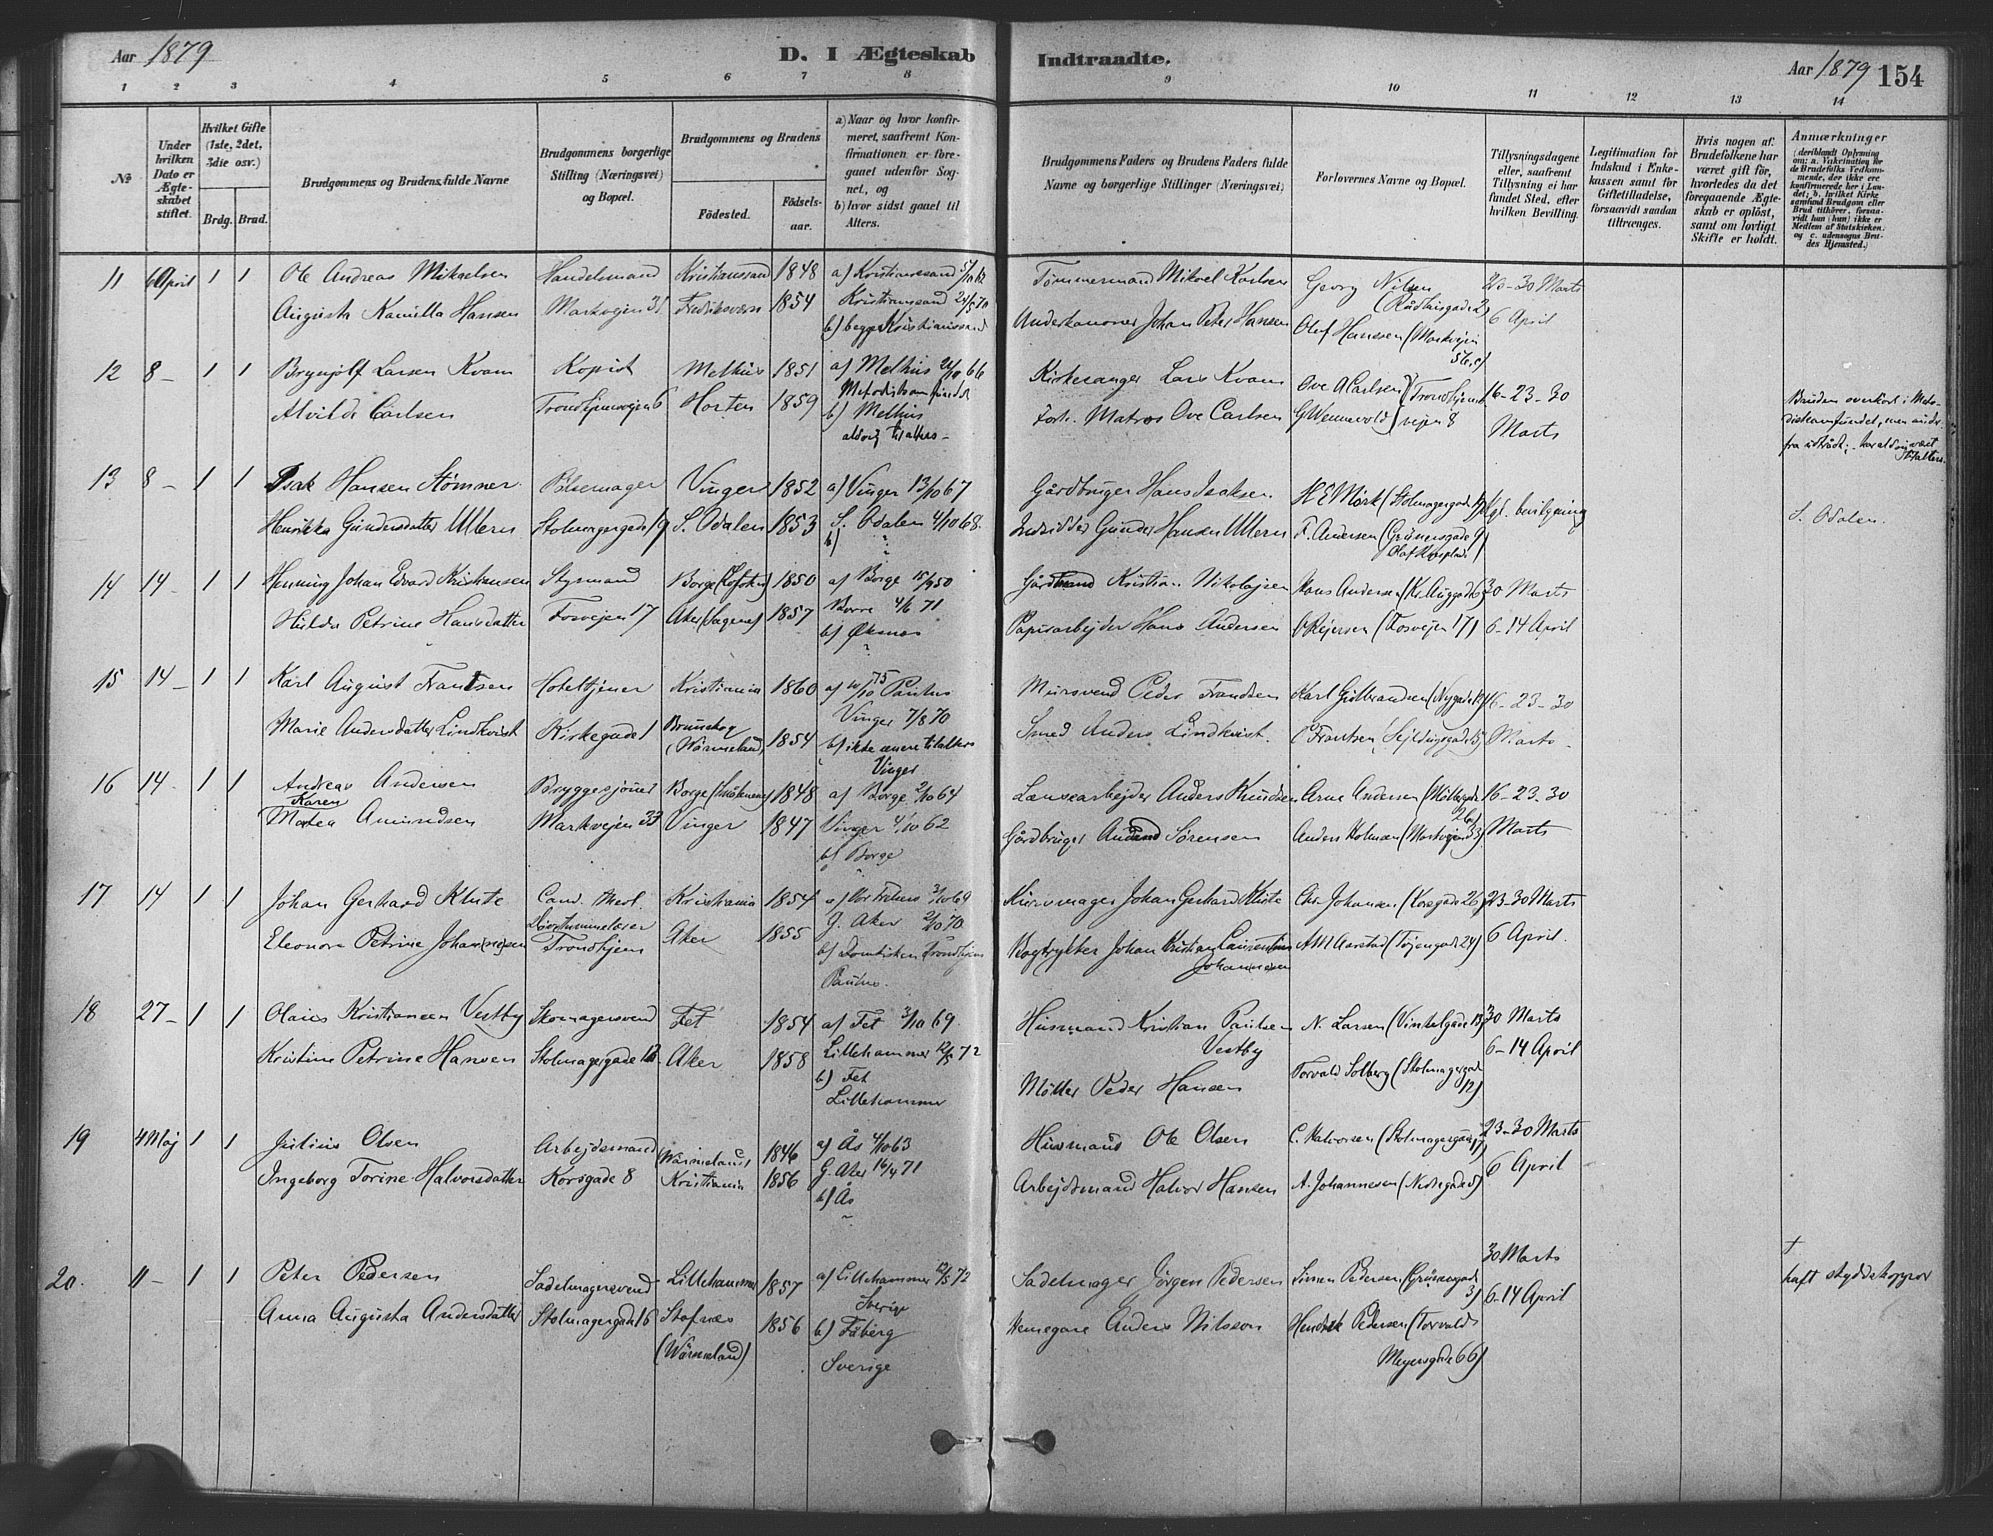 Aar 1879
D. I Ægteskab Indtraadte.
Aar 1879 154
1 2 3 4 5 6 7 8 9 10 11 12 13 14
№
Under hvilken Dato er Ægteskabet stiftet.
Hvilket Gifte (1ste, 2det, 3die osv.)
Brdg. Brud.
Brudgommens og Brudens fulde Navne
Brudgommens borgerlige Stilling (Næringsvei) og Bopæl.
Brudgommens og Brudens
Fødested.
Fødselsaar.
a) Naar og hvor konfirmeret, saafremt Konfirmationen er foregaaet udenfor Sognet, og
b) hvor sidst gaaet til Alters.
Brudgommens Faders og Brudens Faders fulde Navne og borgerlige Stillinger (Næringsvei)
Forlovernes Navne og Bopæl.
Tillysningsdagene eller, saafremt Tillysning ei har fundet Sted, efter hvilken Bevilling.
Legitimation for Indskud i Enkekassen samt for Giftetilladelse, forsaavidt saadan tiltrænges.
Hvis nogen af Brudefolkene har været gift før, hvorledes da det foregaaende Ægteskab er opløst, samt om lovligt Skifte er holdt.
Anmærkninger
(deriblandt Oplysning om: a. Vakcination for de Brudefolks Vedkommende, der ikke ere konfirmerede her i Landet; b. hvilket Kirkesamfund Brudgom eller Brud tilhører, forsaavidt han (hun) ikke er Medlem af Statskirken, og c. udensogns Brudes Hjemsted.)
11 6 April 1 1 Ole Andreas Mikaelsen Handelsmand Kristianssand 1848 a) Kristianssand 5/10 62 Tømmermand Mikael Karlsen Georg Nilsen 23-30 Marts
Augusta Kamilla Hansen Markvejen 35 Fredriksværn 1854 Kristianssand 24/5 70 Underkanoner Johan Peter Hansen Olaf Hanssen (Markvejen 6 April
b) begge Kristianssand
12 8 - 1 1 Brynjolf Larsen Kvam Kopist Melhus 1851 a) Melhus 66 Kirkesanger Lars Kvam Ove A Carlsen (Trondhjems 16-23-30
Alvilde Carlsen Trondhjemsvejen 6 Horten 1859 Metodistsamfundet Forh. Matros Ove Carlsen G Wennevold vejen 8 Marts
b) Melhus
aldrig til alters -
Bruden overhørt i Metodistsamfundet, men
13 8 - 1 1 Isak Hansen Stømner Pølsemager Vinger 1852 a) Vinger 13/10 67 Gårdbruger Hans Isaksen H E Mørk (Stolmagergade kgl. bevilgning
Henrikka Gundersdatter Ullern Stolmagergade 19 S. Odalen 1853 S. Odalen 4/10 68 Inderst Gunder Hansen Ullern F. Andersen (Grünersgade 9) S. Odalen.
b) "
14 14 - 1 1 Henning Johan Edvard Kristiansen Styrmand Borge (Lofoten) 1850 a) Borge 15/9 50 Gårdmand Kristian Nikolajsen Hans Andersen 30 Marts
Hulda Petrine Hansdatter Fosvejen 17 Aker (Sagene) 1857 Borre 4/6 71 Papirarbejder Hans Andersen O Rejersen (Fosvejen 17) 6-14 April
b) Øksnes
15 14 - 1 1 Karl August Frantsen Hoteltjener Kristiania 1860 a) 10/10 75 Paulus Mursvend Peder Frandsen Karl Gulbrandsen (Nygade 16-23-30
Marie Andersdatter Lindkvist Kirkegade 1 Brunskog (Wärmeland) 1854 Vinger 7/8 70 Smed Anders Lindkvist. C Frantsen Marts -
b) ikke senere til alters
Vinger
16 14. 1 1 Andreas Andersen Bryggesjouer Borge (Smålenene) 1848 a) Borge 2/10 64 Lænsearbejder Anders Knudsen Arne Andersen (Møllergade 16-23-30
Karen
Matea Amundsen Markvejen 33 Vinger 1847 Vinger 4/10 62 Gårdbruger Amund Sørensen Anders Holmen (Markvejen 33) Marts
b) Borge
17 14 1 1 Johan Gerhard Klute Cand. theol. Kristiania 1854 a) Vor Frelsers 3/10 69 Johan Gerhard Klute Chr. Johansen (Korsgade 26) 23-30 Marts
Eleonora Petrine Johan(nes)sen Døvstummelærer Trondhjem Aker 1855 G. Aker 2/10 70 Bogtrykker Johan Kristian Laurentius Johannesen A M Aarstad (Tøjengade 24) 6 April.
b) Domkirken Trondhjem
Paulus.
18 27 - 1 1 Olaus Kristiansen Vestby Skomagersvend Fet 1854 a) Fet 3/10 69. Husmand Kristian Paulsen Vestby N. Larsen (Vinkelgade 30 Marts
Kristine Petrine Hansen Stolmagergade 12 Aker 1858 Lillehammer 12/5 72 Møller Peder Hansen Torvald Solberg (Stolmagergade 12) 6-14 April
b) Fet
Lillehammer
19 4 Maj 1 1 Julius Olsen Arbejdsmand Wärmeland 1846 a) Ås 4/10 63 Husmand Ole Olsen C. Halvorsen (Stolmagergade 17) 23-30 Marts
Ingeborg Torine Halvorsdatter Korsgade 8 Kristiania 1856 G. Aker 16/4 71 Arbejdsmand Halvor Hansen A. Johannesen 6 April
b) Ås
20. 11 - 1 1 Peter Pedersen Sadelmagersvend Lillehammer 1857 a) Lillehammer 12/5 72 Sadelmager Jørgen Pedersen Simen Pedersen (Grünersgade 3) 30 Marts
Anna Augusta Andersdatter Stolmagergade 16 Stafnæs (Wärmeland) 1856 Sverige Hemegare Anders Nilsson Hendrik Pedersen (Torvald Meyersgade 66) 6-14 April
b) Fåberg
Sverige
†
haft skyddskoppor